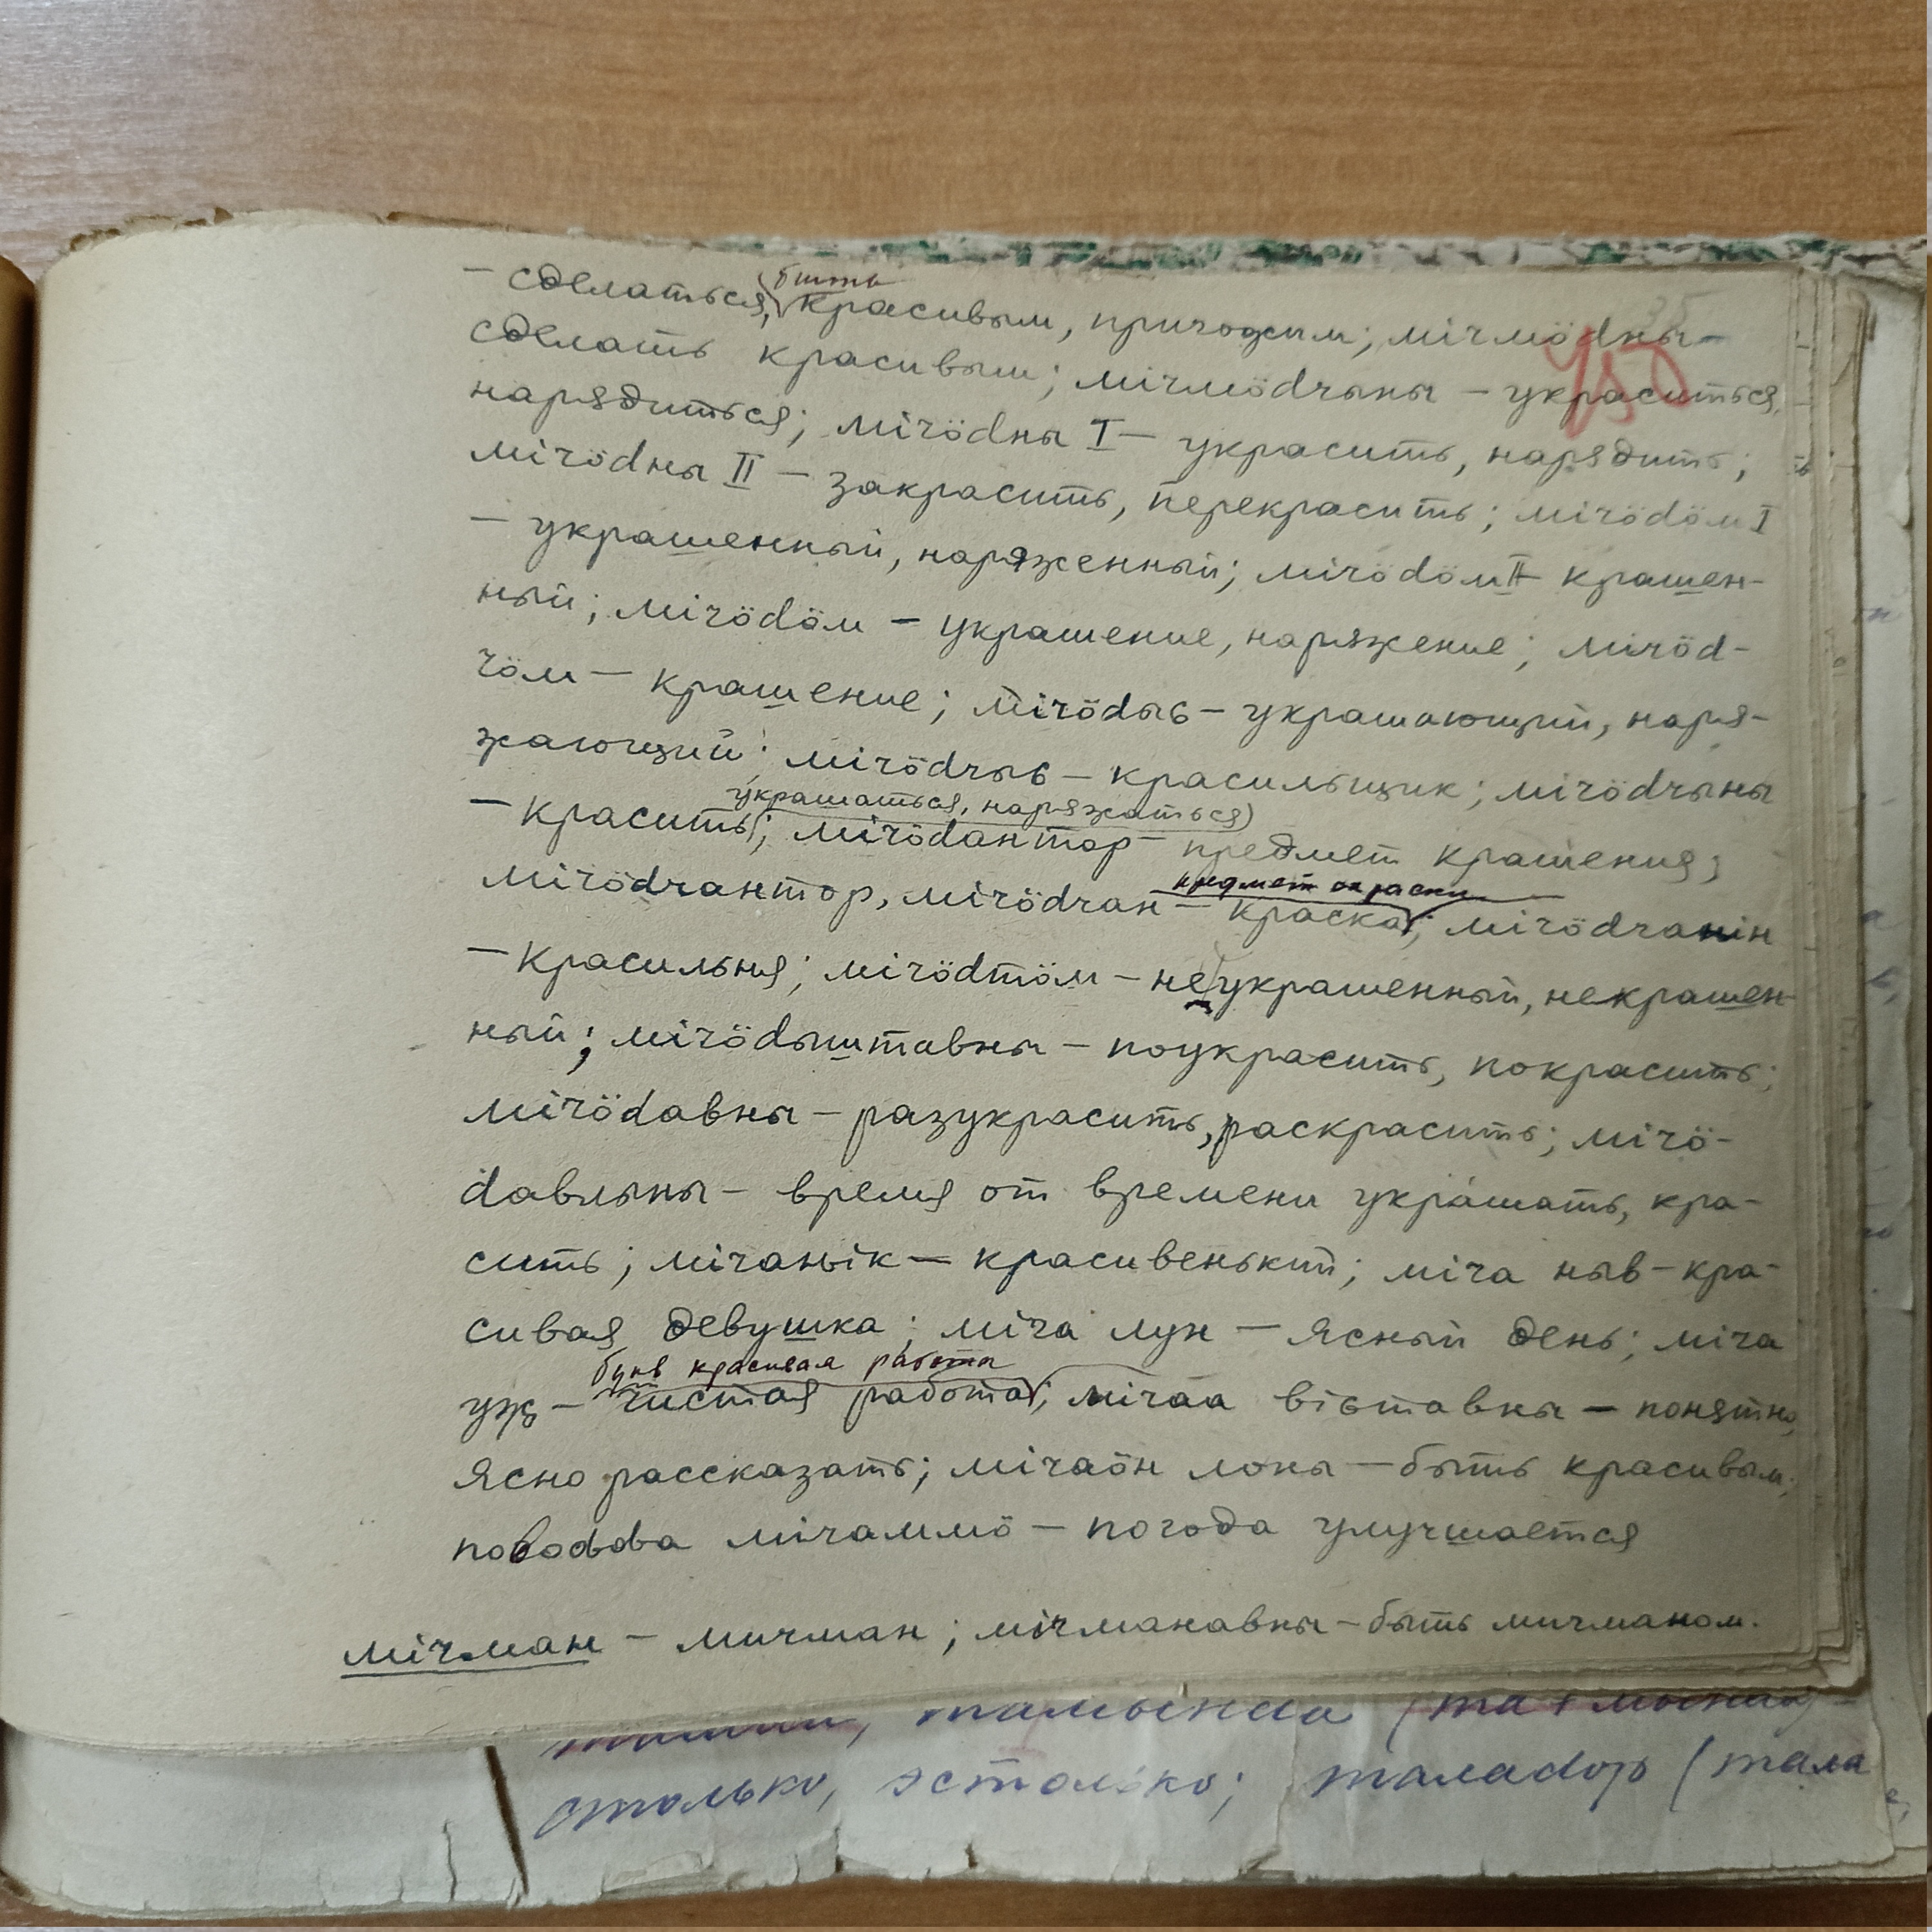 — сделаться, (быть) красивым, пригожим; мічмӧԁны —
сделать красивым; мічмӧԁчыны — украситься,
нарядиться; мічӧԁны I — украсить, нарядить;
мічӧԁны II — закрасить, перекрасить; мічӧԁӧм I
— украшенный, наряженный; мічӧԁӧм II — крашен-
ный; мічӧԁӧм — украшение, наряжение; мічӧԁ-
чӧм — крашение; мічӧԁыԍ — украшающий, наря-
жающий; мічӧԁчыԍ — красильщик; мічӧԁчыны
украшаться, наряжаться)
— красить; мічӧԁантор — предмет крашения;
предмет окраски
мічӧԁчантор, мічӧԁчан — краска; мічӧԁчанін
— красильня; мічӧԁтӧм — неукрашенный, некрашен-
ный; мічӧԁыштавны — поукрасить, покрасить;
мічӧԁавны — разукрасить, раскрасить; мічӧ-
ԁавлыны — время от времени украшать, кра-
сить; мічаԋік — красивенький; міча ныв — кра-
сивая девушка; міча лун — ясный день; міча
букв красивая работа
уҗ — чистая работа; мічаа віԍтавны — понятно,
ясно рассказать; мічаӧн лоны — быть красивым;
повоԃԃа мічаммӧ — погода улучшается
мічман — мичман; мічманавны — быть мичманом.
тамынԁа (та + мынԁа) —
столько, эстолько; талаԁор (тала